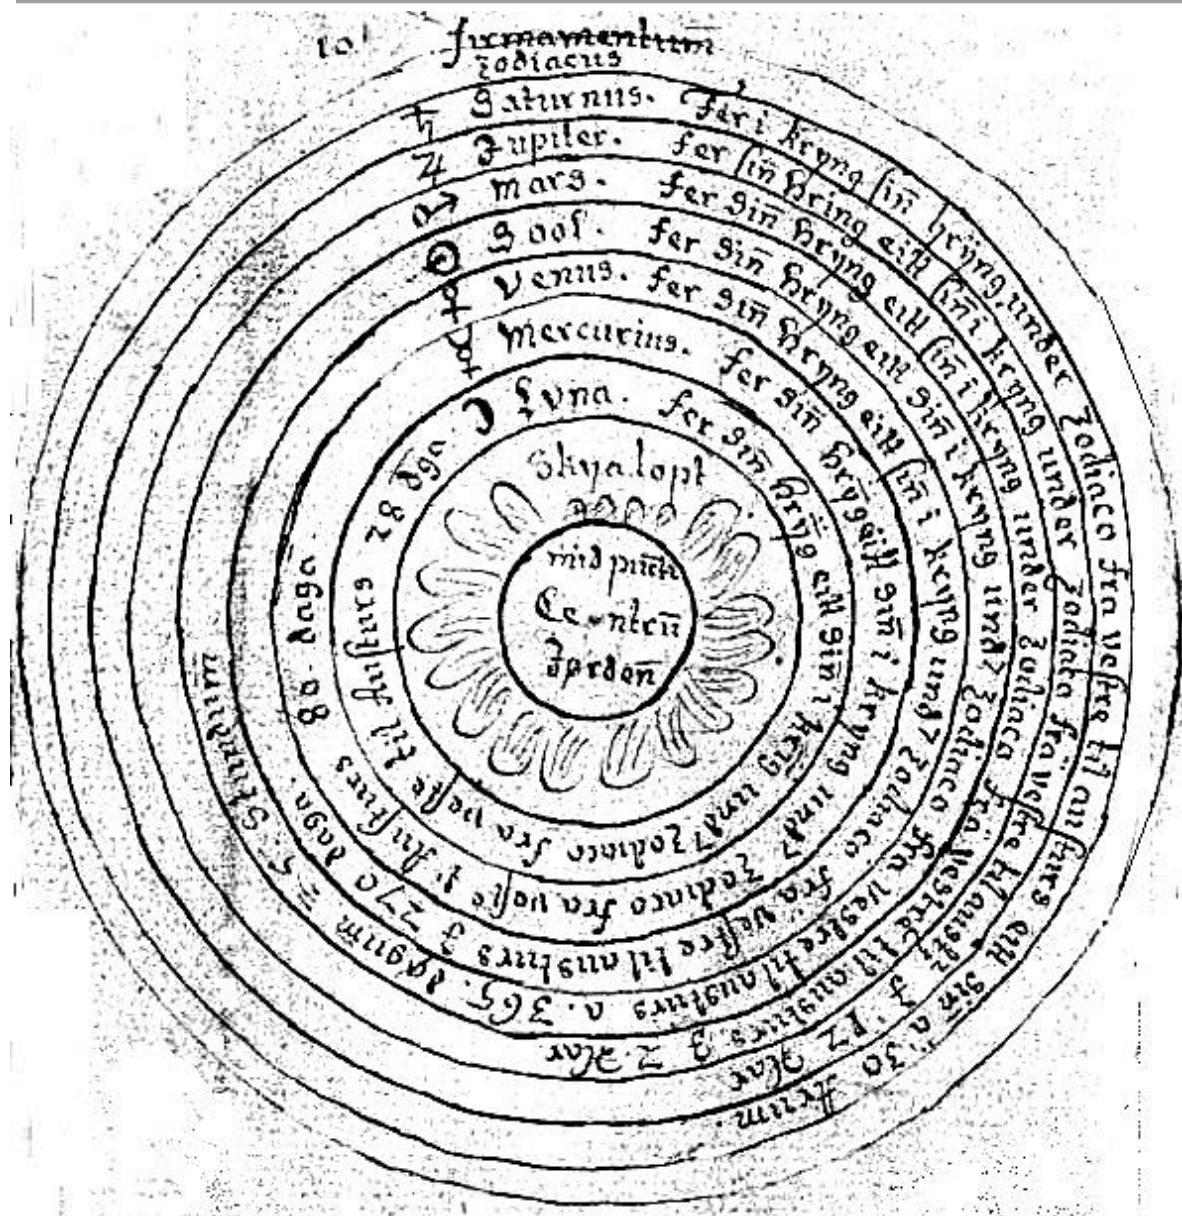 101
firmamentum̄
Zodiacus
♄ Saturnus. Fer i kryng sin̄ hrÿng under Zodiaco fra vestre til austurs eitt sin̄ a 30 Arum.
♃ Jupiter. fer sin̄ hring eitt sin̄ i kryng under Zodiaco fra vestre til austz i 12 Aar
♂ Mars. fer sin̄ hryng eitt sin̄ i kryng under Zodiaco fra vestre til austurs i 2 Aar
☉ Sool. fer sin̄ hryng eitt sin̄ i kryng und Zodiaco fra vestre til austurs a. 365. døgum̄ = 5. Stundum̄
♀ Venus. fer sin̄ hryng eitt sin̄ i kryng und Zodiaco fra vestre til austurs i 270 daga.
☿ Mercurius. fer sin̄ hrÿg eitt sin̄ i kryng und Zodiaco fra veste austurs 80. daga.
☽ Luna. fer sin̄ hrÿg eitt sin i krÿg und Zodiaco fra veste til austurs 28 dga.
Skya lopt
mid punctr
Centrū
Jorden̄